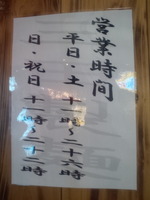 営業時間
平日・土 十一時～二十六時
日・祝日 十一時～二十二時